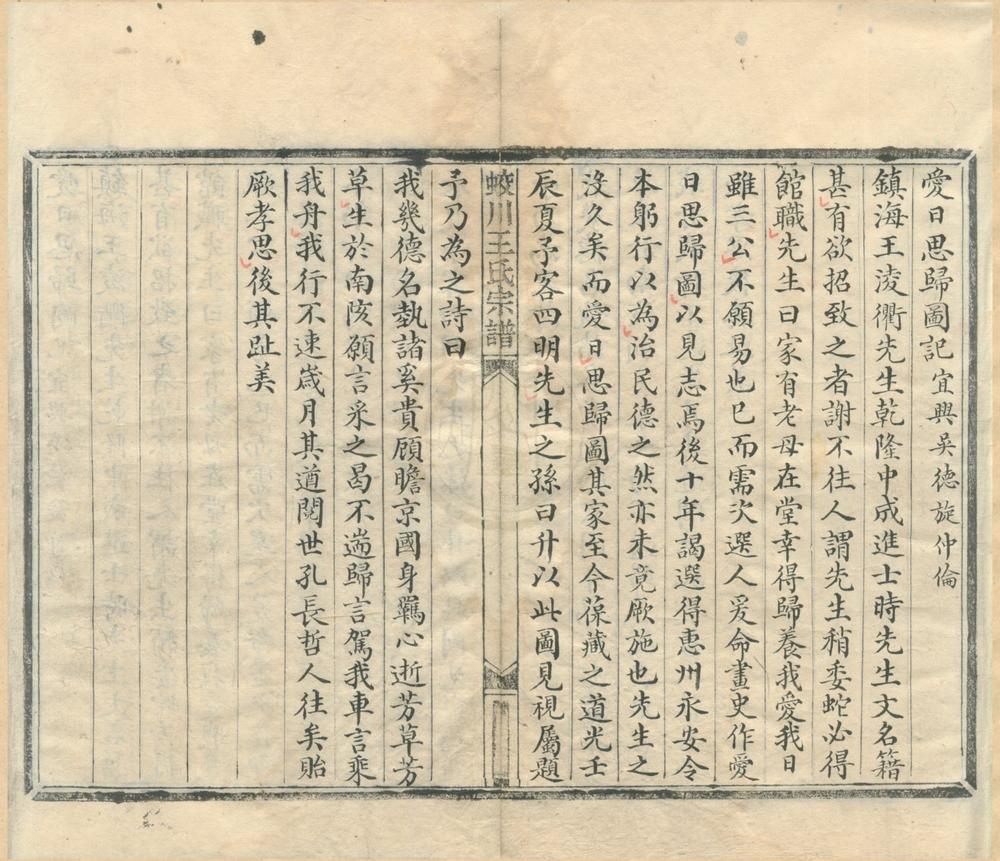 愛日思歸圖記宜興吳德旋仲倫
鎮海王淩衢先生乾隆中成進士時先生文名籍
甚有欲招致之者謝不往人謂先生稍委蛇必得
館職先生曰家有老母在堂幸得歸養我愛我日
雖三公不願易也已而需次選人爰命畫史作愛
日思歸圖以見志焉後十年謁選得惠州永安令
本躬行以為治民德之然亦未竟厥施也先生之
沒久矣而愛日思歸圖其家至今葆藏之道光壬
辰夏予客四明先生之孫曰升以此圖見視屬題
蛟川王氏宗譜
予乃為之詩曰
我幾德名埶諸奚貴顧瞻京國身羈心逝芳草芳
草生於南陔願言采之曷不遄歸言駕我車言乘
我舟我行不速歲月其遒閱世孔長哲人往矣貽
厥孝思後其趾美